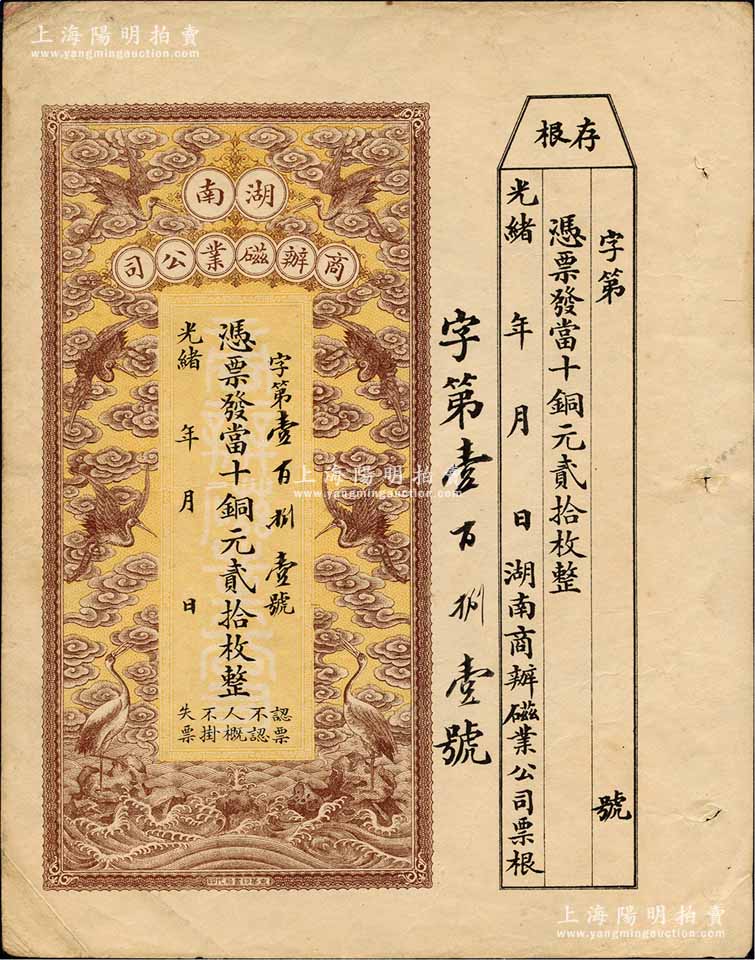 上海陽明拍賣
www.yangmingauction.com
存根
字第 號
憑票發當十銅元貳拾枚整
光緒 年 月 日湖南商辦磁業公司票根
字第壹百捌壹號
湖南
商辦磁業公司
字第壹百捌壹號
憑票發當十銅元貳拾枚整
光緒 年 月 日
認票不認人概不掛失票
上海陽明拍賣
www.yangmingauction.com
上海陽明拍賣
www.yangmingauction.com